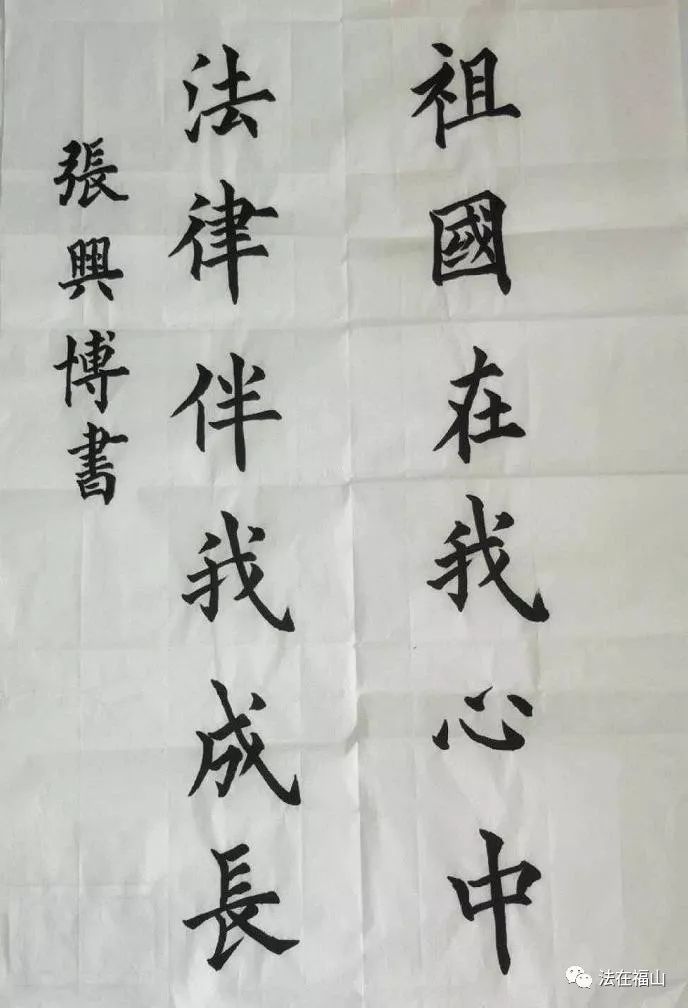 祖國在我心中
法律伴我成長
張興博書
法在福山